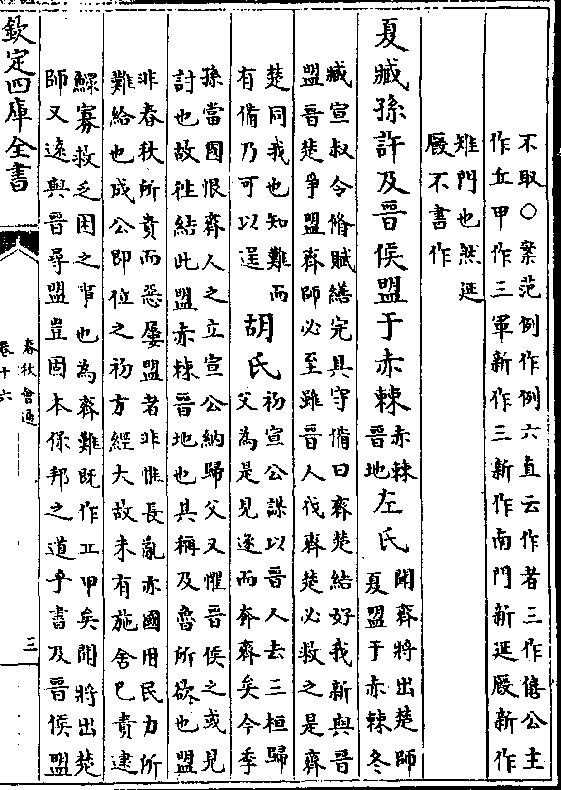 不取○案范例作例六直云作者三作僖公主
作丘甲作三軍新作三新作南門新延廐新作
雉門也然延
廐不書作
夏臧孫許及晉侯盟于赤棘
赤棘
晉地
左氏
聞齊將出楚師
夏盟于赤棘冬
臧宣叔令脩賦繕完具守備曰齊楚結好我新與晉
盟晉楚爭盟齊師必至雖晉人伐齊楚必救之是齊
楚同我也知難而
有備乃可以逞
胡氏
初宣公謀以晉人去三桓歸
父為是見逐而奔齊矣今季
孫當國恨齊人之立宣公納歸父又懼晉侯之或見
討也故徃結此盟赤棘晉地也其稱及魯所欲也盟
非春秋所貴而惡屢盟者非惟長亂亦國用民力所
難給也成公即位之初方經大故未有施舍已責逮
鰥寡救乏困之事也為齊難既作丘甲矣聞將出楚
師又遠與晉尋盟豈固本保邦之道乎書及晉侯盟
欽定四庫全書
春秋會通
卷十六
三